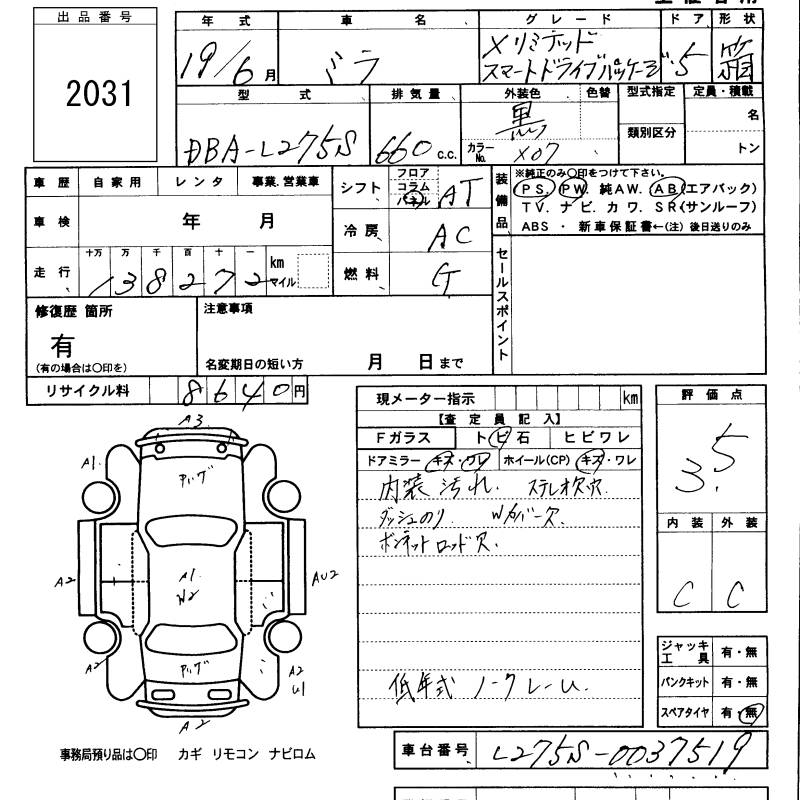 出品番号
2031
年式
19/6月
車名
ミラ
グレード
Xリミテッド
スマートドライブパッケージ
ドア
5
形状
箱
型式
DBA-L275S
排気量
660 c.c.
外装色
黒
色替
カラーNo.
X07
型式指定
類別区分
定員・積載
名
トン
車歴 自家用 レンタ 事業.営業車
車検 年 月
走行 十万 万 千 百 十 一
138272 km マイル
シフト フロア コラム パネル AT
冷房 AC
燃料 G
装備品
※純正のみ〇印をつけて下さい。
PS. PW. 純AW. AB(エアバック)
TV. ナビ. カワ. SR(サンルーフ)
ABS ・ 新車保証書←(注)後日送りのみ
セールスポイント
修復歴 箇所
有
(有の場合は〇印を)
注意事項
名変期日の短い方 月 日まで
リサイクル料 8640円
現メーター指示 km
【査定員記入】
Fガラス トビ石 ヒビワレ
ドアミラー キズ・ワレ ホイール(CP) キズ・ワレ
内装 汚れ. ステレオ欠穴
ダッシュのり. Wカバー欠.
ボンネットロッド欠.
低年式 ノークレーム.
評価点
3.5
内装 外装
C C
ジャッキ工具 有・無
パンクキット 有・無
スペアタイヤ 有・無
A3
A1
A1.
W2
A2
AU2
A2
A2
U1
A2
事務局預り品は〇印 カギ リモコン ナビロム
車台番号 L275S-0037519